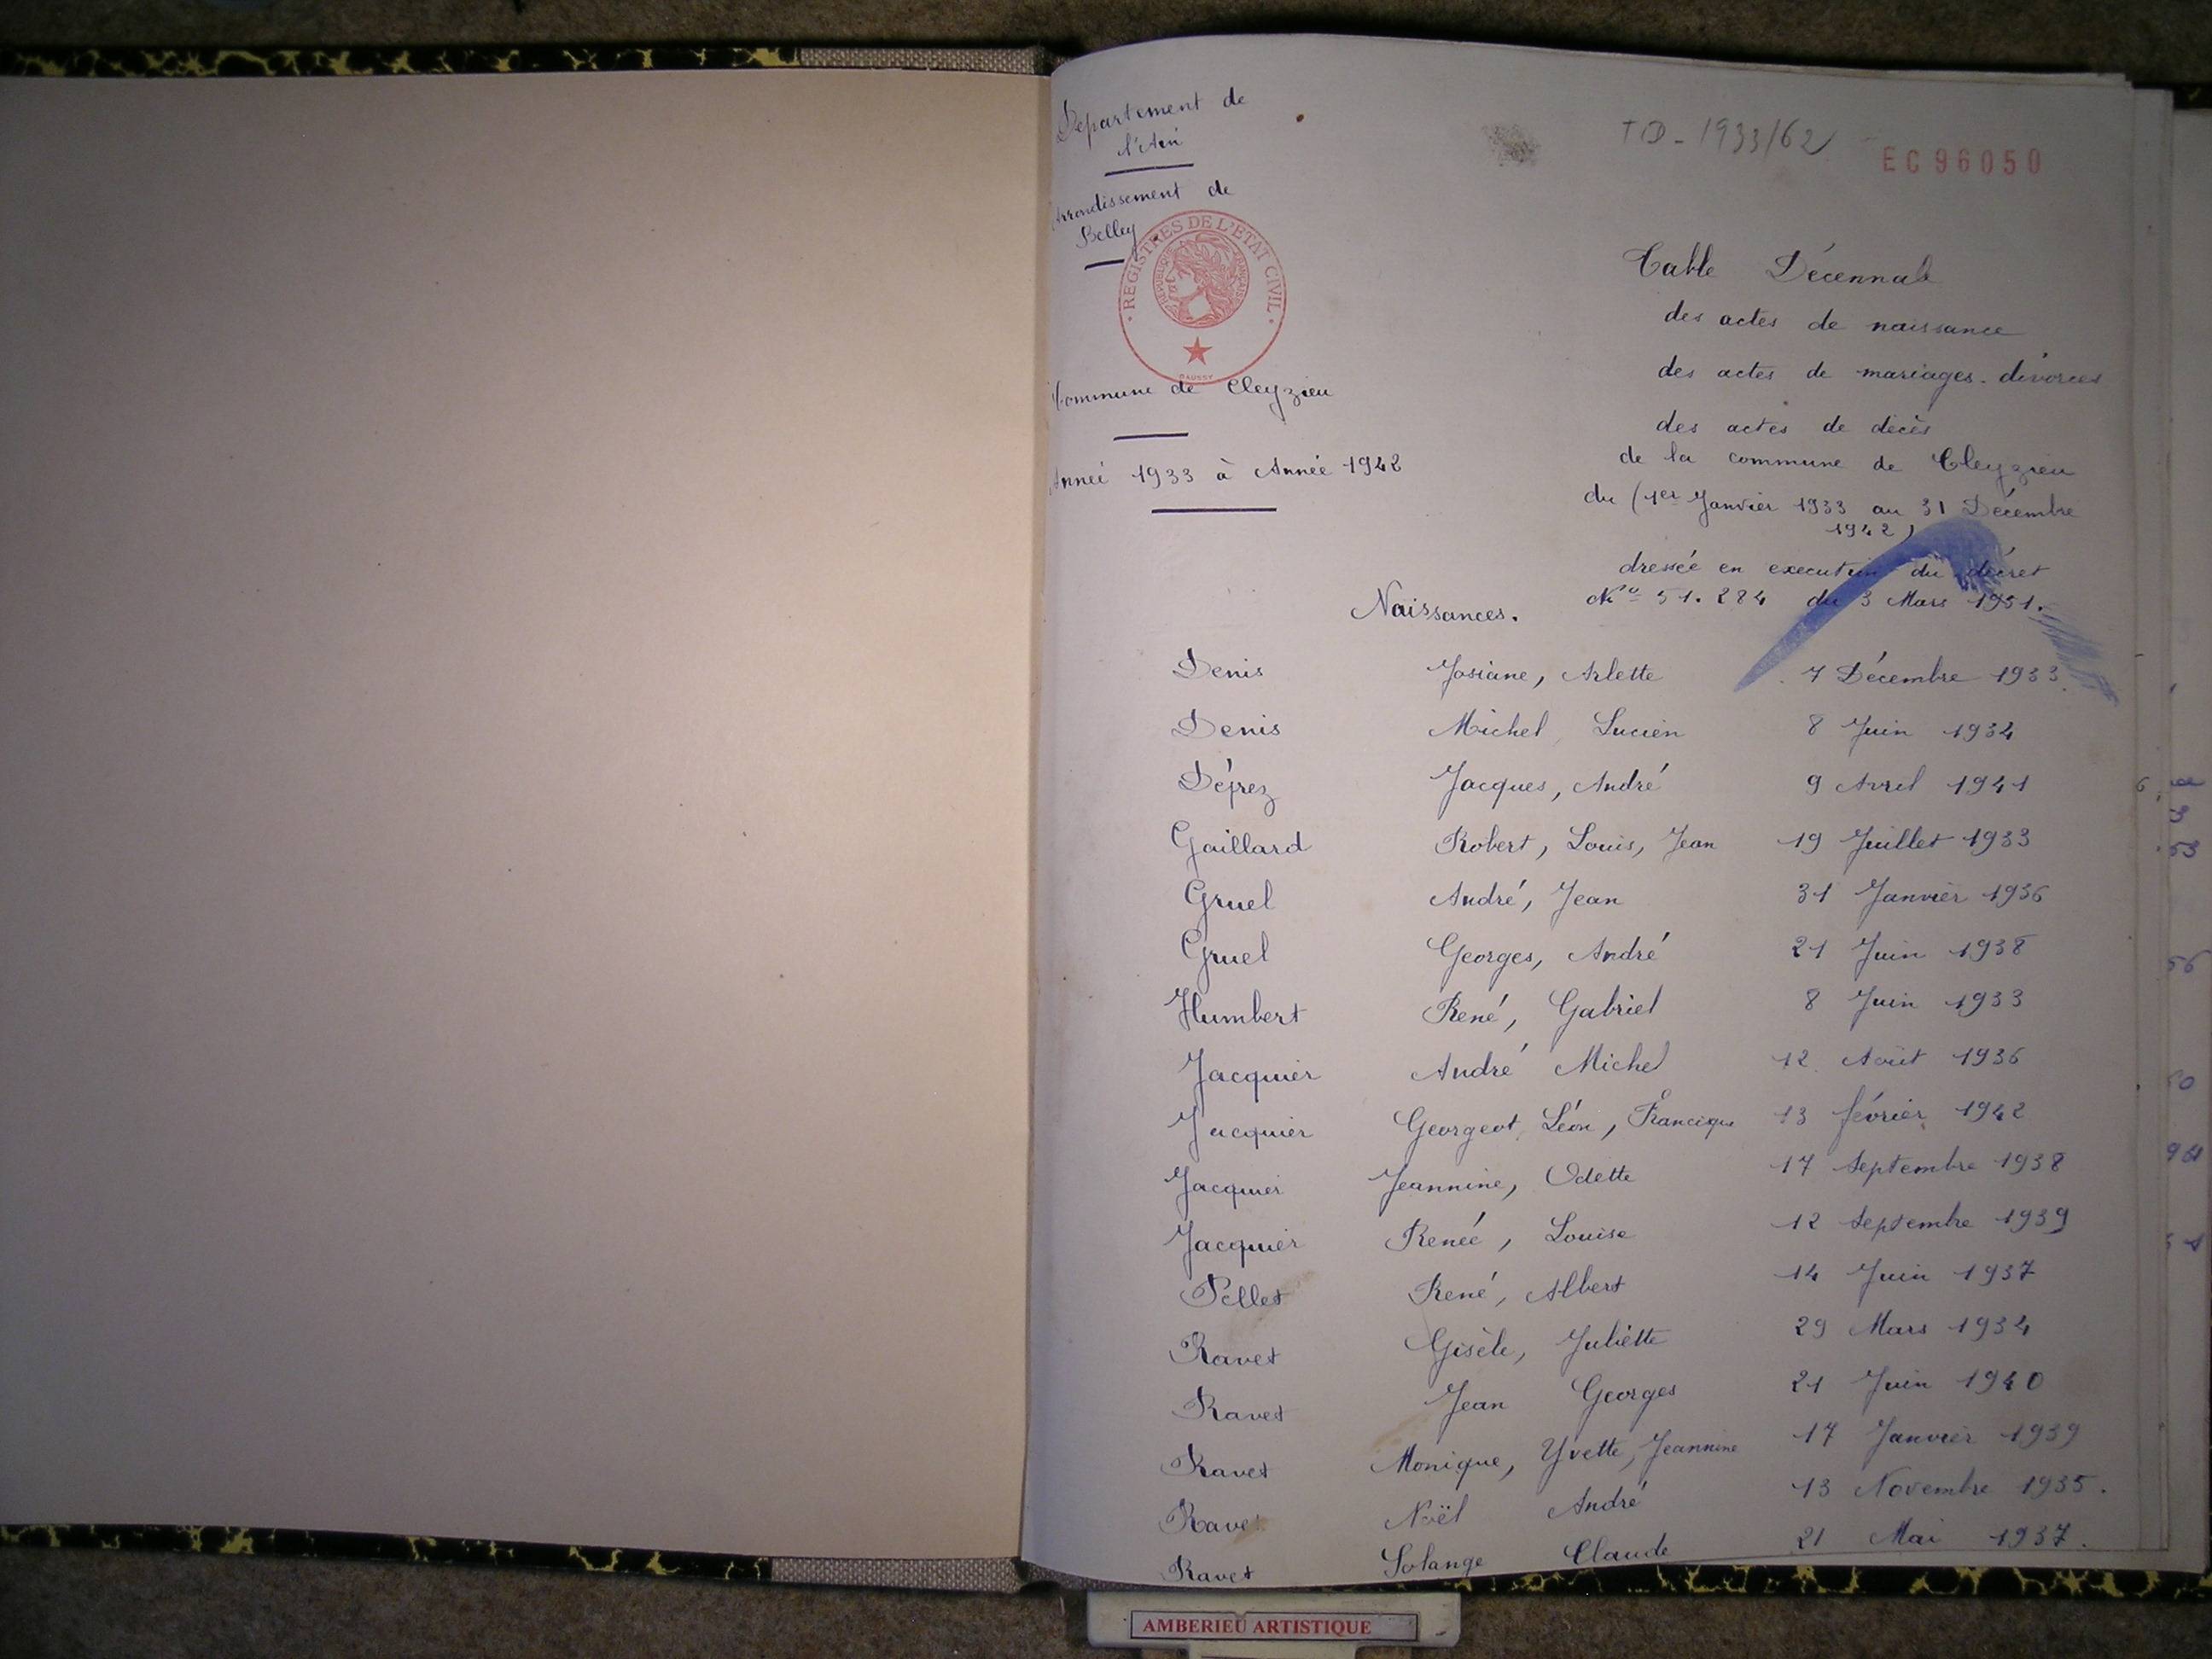 Département de
l'Ain
Arrondissement de
Belley
REGISTRES DE L'ETAT CIVIL
REPUBLIQUE FRANCAISE
Commune de Cleyzieu
Année 1933 à Année 1942
TD - 1933/62
EC96050
Table Décennale
des actes de naissance
des actes de mariages - divorces
des actes de décès
de la commune de Cleyzieu
du (1er Janvier 1933 au 31 Décembre
1942)
dressée en execution du décret
No 51.284 du 3 Mars 1951.
Naissances.
Denis Josiane, Arlette 7 Décembre 1933.
Denis Michel, Lucien 8 Juin 1934
Déprez Jacques, André 9 Avril 1941
Gaillard Robert, Louis, Jean 19 Juillet 1933
Gruel André, Jean 31 Janvier 1936
Gruel Georges, André 21 Juin 1938
Humbert René, Gabriel 8 Juin 1933
Jacquier André Michel 12 Août 1936
Jacquier Georgeot, Léon, Francique 13 février 1942
Jacquier Jeannine, Odette 17 Septembre 1938
Jacquier Renée, Louise 12 Septembre 1939
Pellet René, Albert 14 Juin 1937
Ravet Gisèle, Juliette 29 Mars 1934
Ravet Jean Georges 21 Juin 1940
Ravet Monique, Yvette, Jeannine 17 Janvier 1939
Ravet Noël André 13 Novembre 1935.
Ravet Solange Claude 21 Mai 1937.
AMBERIEU ARTISTIQUE